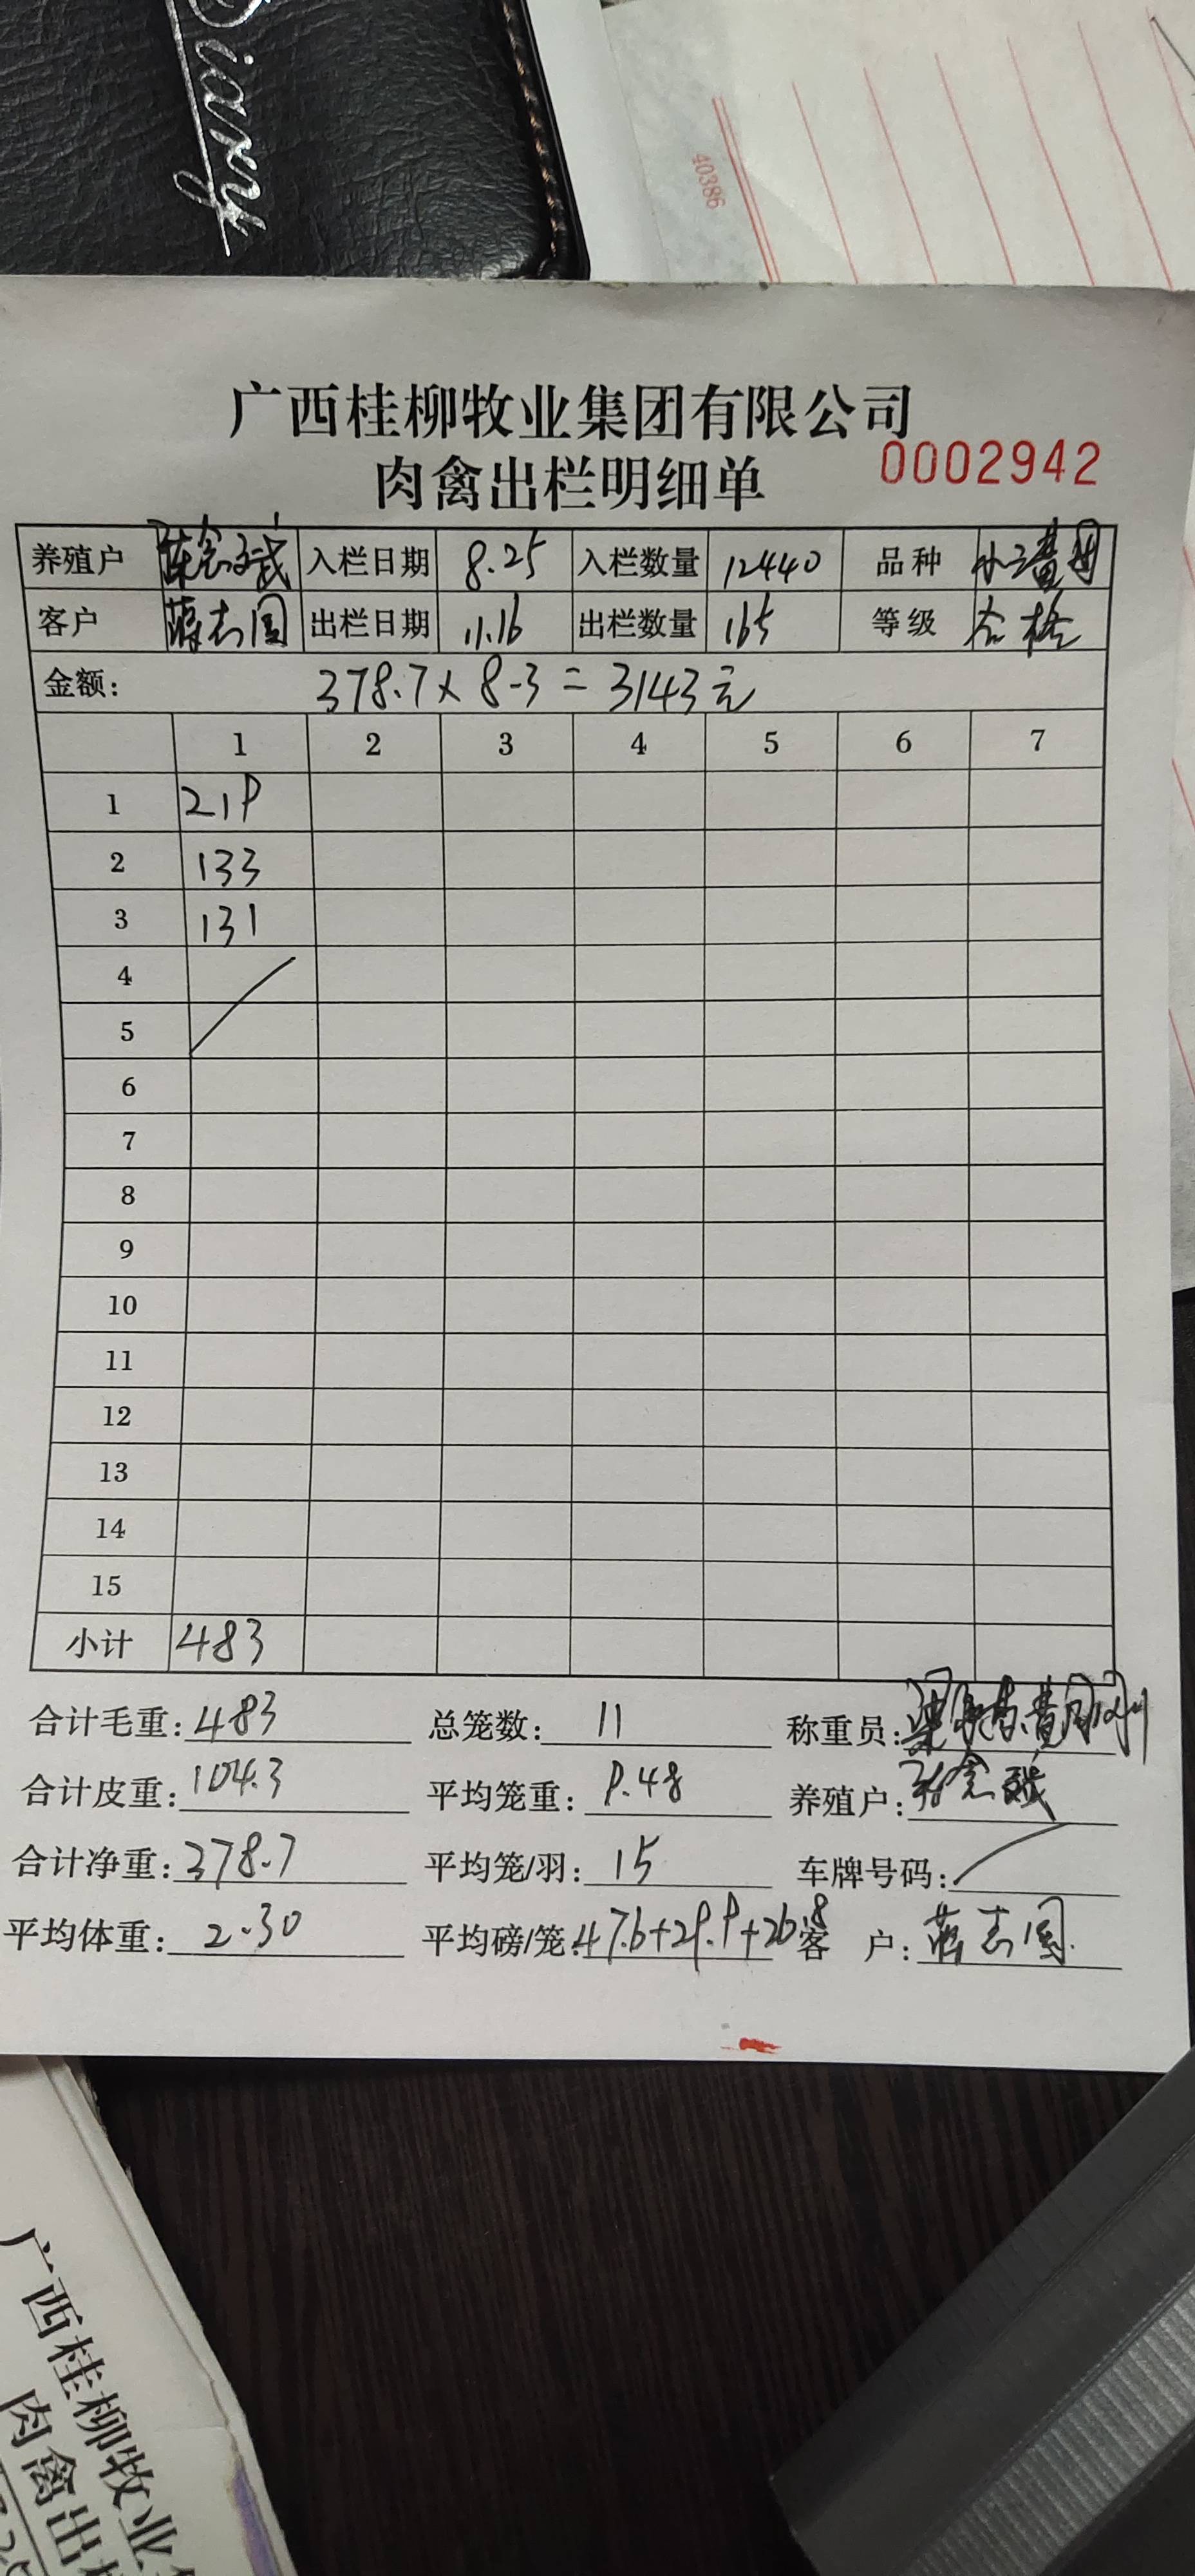 Diary
40386
广西桂柳牧业集团有限公司
肉禽出栏明细单 0002942
养殖户 陈念斌 入栏日期 8.25 入栏数量 12440 品种
客户 蒋志国 出栏日期 11.16 出栏数量 165 等级 合格
金额: 378.7×8.3=3143元
1 2 3 4 5 6 7
1 219
2 133
3 131
4
5
6
7
8
9
10
11
12
13
14
15
小计 483
合计毛重: 483 总笼数: 11 称重员:
合计皮重: 104.3 平均笼重: 9.48 养殖户:
合计净重: 378.7 平均笼/羽: 15 车牌号码:
平均体重: 2.30 平均磅/笼: 47.6+29.9+26.8 客户: 蒋志国
广西桂柳牧业
肉禽出栏